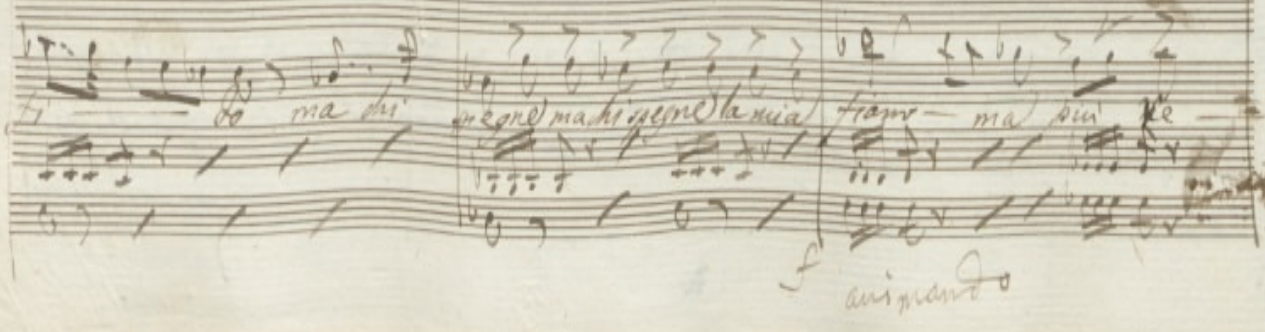 ti — do ma chi spegne ma chi spegne la mia fiam — ma più se
f
animando